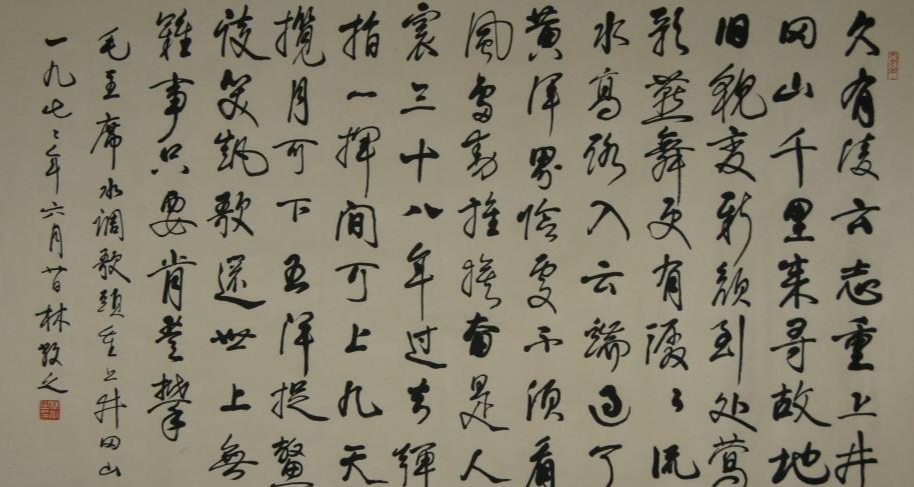 久有凌云志重上井
冈山千里来寻故地
旧貌变新颜到处莺
歌燕舞更有潺々流
水高路入云端过了
黄洋界险处不须看
风雷动旌旗奋是人
寰三十八年过去弹
指一挥间可上九天
揽月可下五洋捉鳖
谈笑凯歌还世上無
難事只要肯登攀
毛主席水调歌頭重上井冈山
一九七々年六月廿日林散之